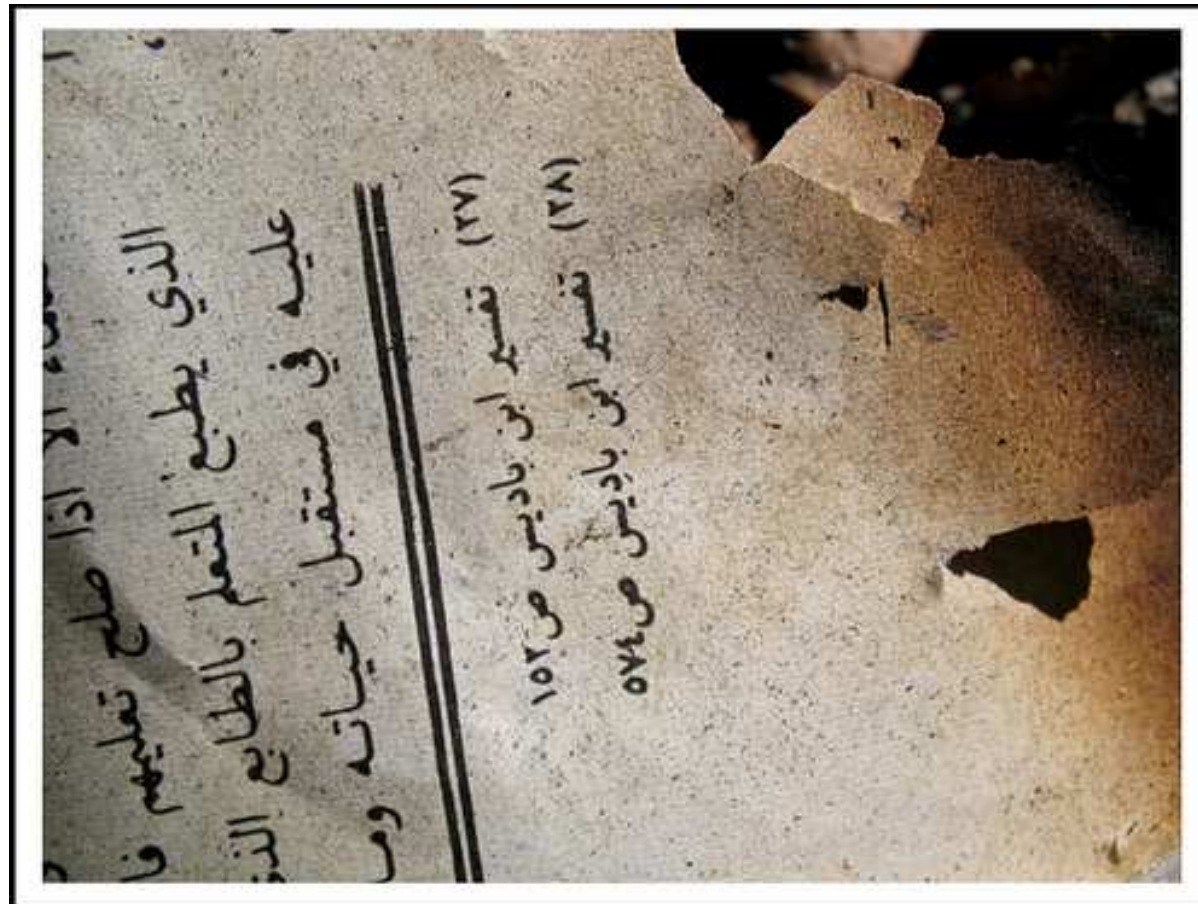 الا اذا صلح تعليمهم فا
الذي يطبع المتعلم بالطابع الذ
عليه في مستقبل حياته وم
(٢٧) تفسير ابن باديس ص ١٥٢
(٢٨) تفسير ابن باديس ص ٥٧٤